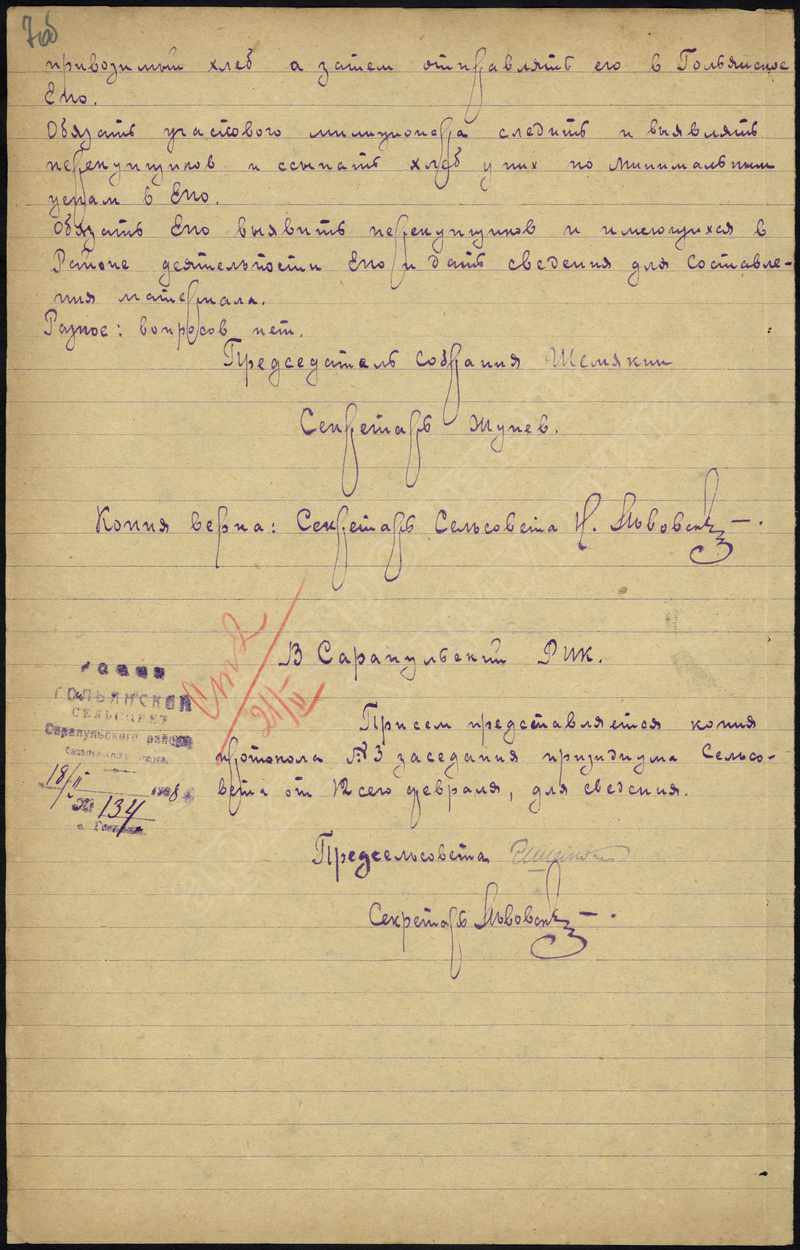 7об
привозимый хлеб а затем отправлять его в Гольянское
Епо.
Обязать участкового милиционера следить и выявлять
перекупщиков и ссыпать хлеб у них по минимальным
ценам в Епо.
Обязать Епо выявить перекупщиков и имеющихся в
Районе деятельности Епо и дать сведения для составле-
ния материала.
Разное: вопросов нет.
Председатель собрания Шемякин
Секретарь Жунев.
Копия верна: Секретарь Сельсовета Н. Львовск
В Сарапульский РИК.
21/II
ГОЛЬЯНСКИЙ
СЕЛЬСОВЕТ
Сарапульского района
18/II 1928
№ 134
При сем представляется копия
протокола №3 заседания призидиума Сельсо-
вета от 12 сего февраля, для сведения.
Предсельсовета
Секретарь Львовск